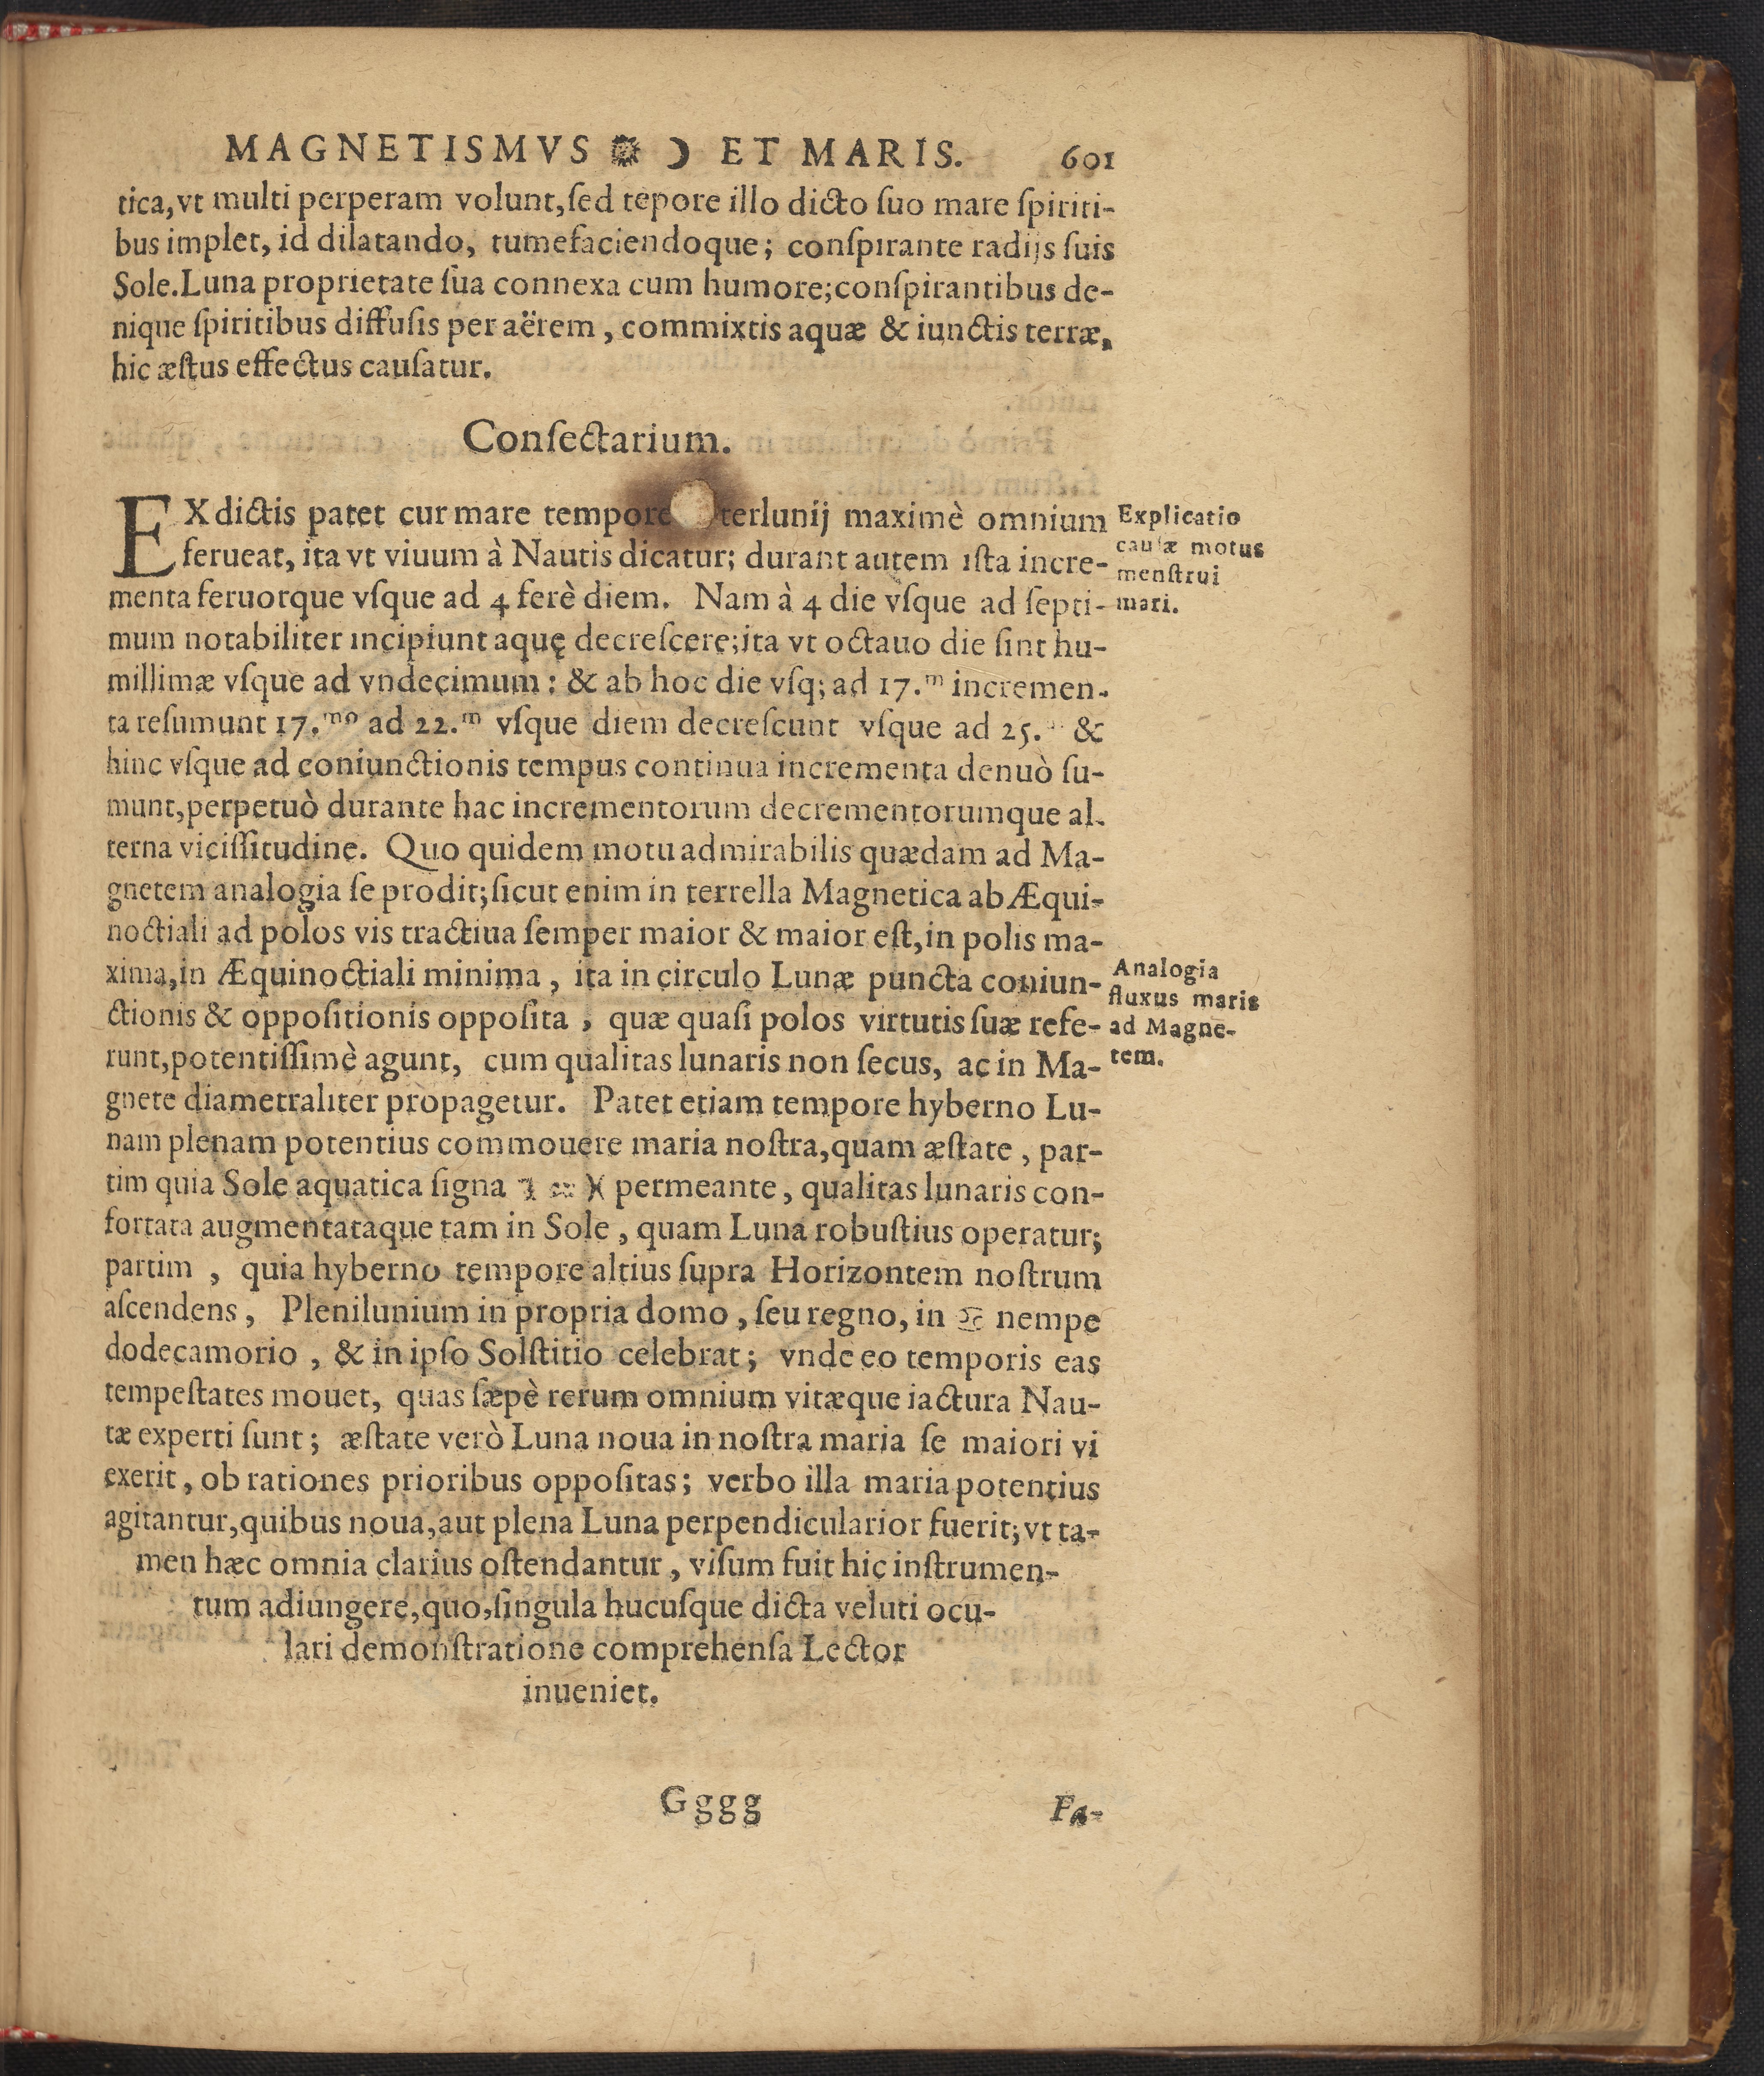 MAGNETISMVS ☼ ☽ ET MARIS. 601
tica,vt multi perperam volunt,ſed tēpore illo dicto ſuo mare ſpiriti-
bus implet, id dilatando, tumefaciendoque; conſpirante radijs ſuis
Sole.Luna proprietate ſua connexa cum humore;conſpirantibus de-
nique ſpiritibus diffuſis per aërem, commixtis aquæ & iunctis terræ,
hic æſtus effectus cauſatur.
Conſectarium.
EX dictis patet cur mare tempore terlunij maximè omnium
ferueat, ita vt viuum à Nautis dicatur; durant autem iſta incre-
menta feruorque vſque ad 4 ferè diem. Nam à 4 die vſque ad ſepti-
mum notabiliter incipiunt aquę decreſcere;ita vt octauo die ſint hu-
millimæ vſque ad vndecimum: & ab hoc die vſq; ad 17.ᵐ incremen-
ta reſumunt 17.ᵐᵒ ad 22.ᵐ vſque diem decreſcunt vſque ad 25. &
hinc vſque ad coniunctionis tempus continua incrementa denuò ſu-
munt,perpetuò durante hac incrementorum decrementorumque al-
terna viciſſitudine. Quo quidem motu admirabilis quædam ad Ma-
gnetem analogia ſe prodit;ſicut enim in terrella Magnetica ab Æqui-
noctiali ad polos vis tractiua ſemper maior & maior eſt,in polis ma-
xima,in Æquinoctiali minima, ita in circulo Lunæ puncta coniun-
ctionis & oppoſitionis oppoſita, quæ quaſi polos virtutis ſuæ refe-
runt,potentiſſimè agunt, cum qualitas lunaris non ſecus, ac in Ma-
gnete diametraliter propagetur. Patet etiam tempore hyberno Lu-
nam plenam potentius commouere maria noſtra,quam æſtate, par-
tim quia Sole aquatica ſigna ♑ ♒ ♓ permeante, qualitas lunaris con-
fortata augmentataque tam in Sole, quam Luna robuſtius operatur;
partim, quia hyberno tempore altius ſupra Horizontem noſtrum
aſcendens, Plenilunium in propria domo, ſeu regno, in ♋ nempe
dodecamorio, & in ipſo Solſtitio celebrat; vnde eo temporis eas
tempeſtates mouet, quas ſæpè rerum omnium vitæque iactura Nau-
tæ experti ſunt; æſtate verò Luna noua in noſtra maria ſe maiori vi
exerit, ob rationes prioribus oppoſitas; verbo illa maria potentius
agitantur,quibus noua,aut plena Luna perpendicularior fuerit;vt ta-
men hæc omnia clarius oſtendantur, viſum fuit hic inſtrumen-
tum adiungere,quo,ſingula hucuſque dicta veluti ocu-
lari demonſtratione comprehenſa Lector
inueniet.
Explicatio
cauſæ motus
menſtrui
mari.
Analogia
fluxus maris
ad Magne-
tem.
Gggg Fa-